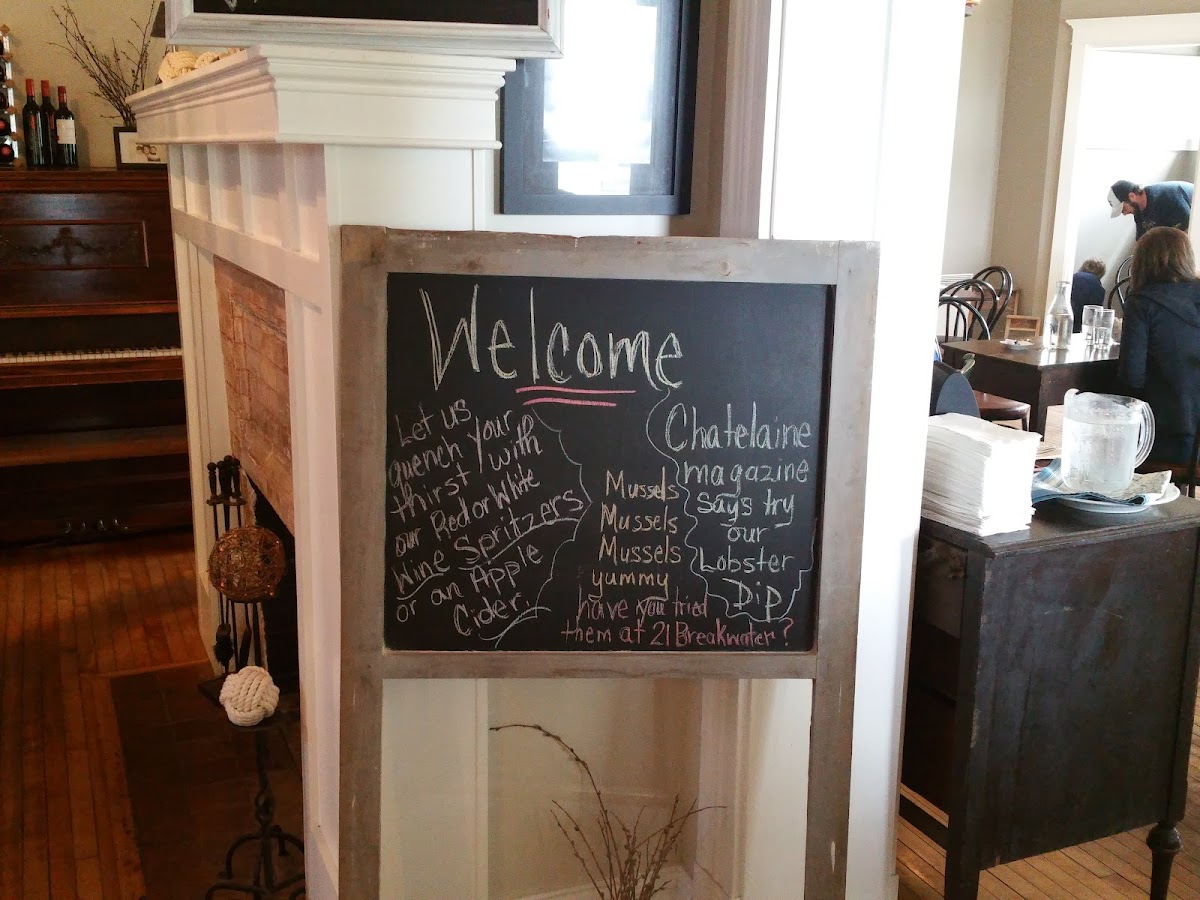 Welcome
Let us
quench your
thirst with
our Red or White
Wine Spritzers
or an Apple
Cider.
Mussels
Mussels
Mussels
yummy
have you tried
them at 21 Breakwater?
Chatelaine
magazine
says try
our
Lobster
Dip